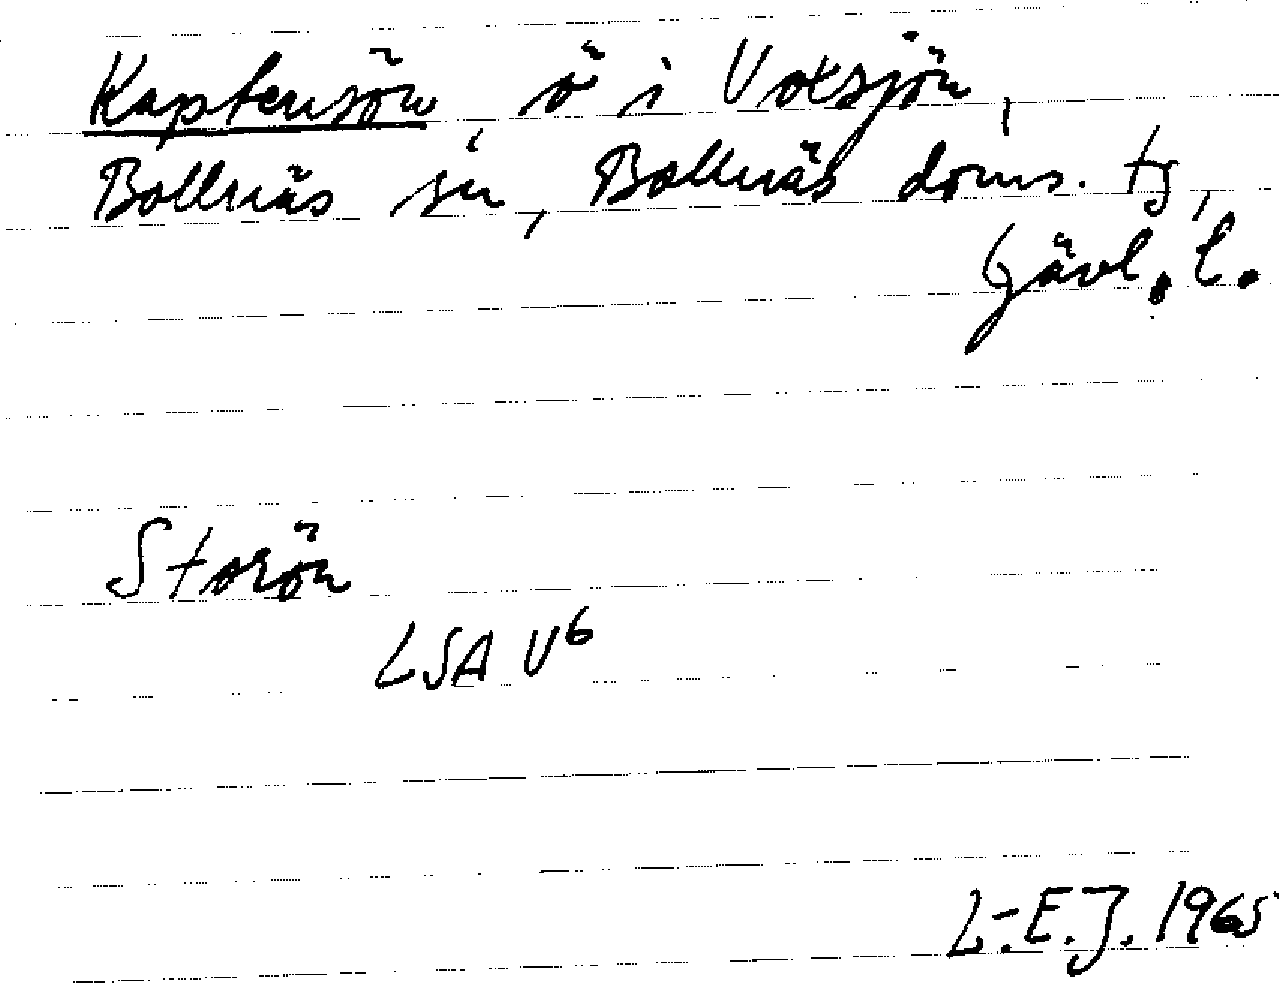 Kaptensön, ö i Voxsjön,
Bollnäs sn, Bollnäs doms. tg,
Gävl. l.
Storön
LSA V6
L.-E.J. 1965